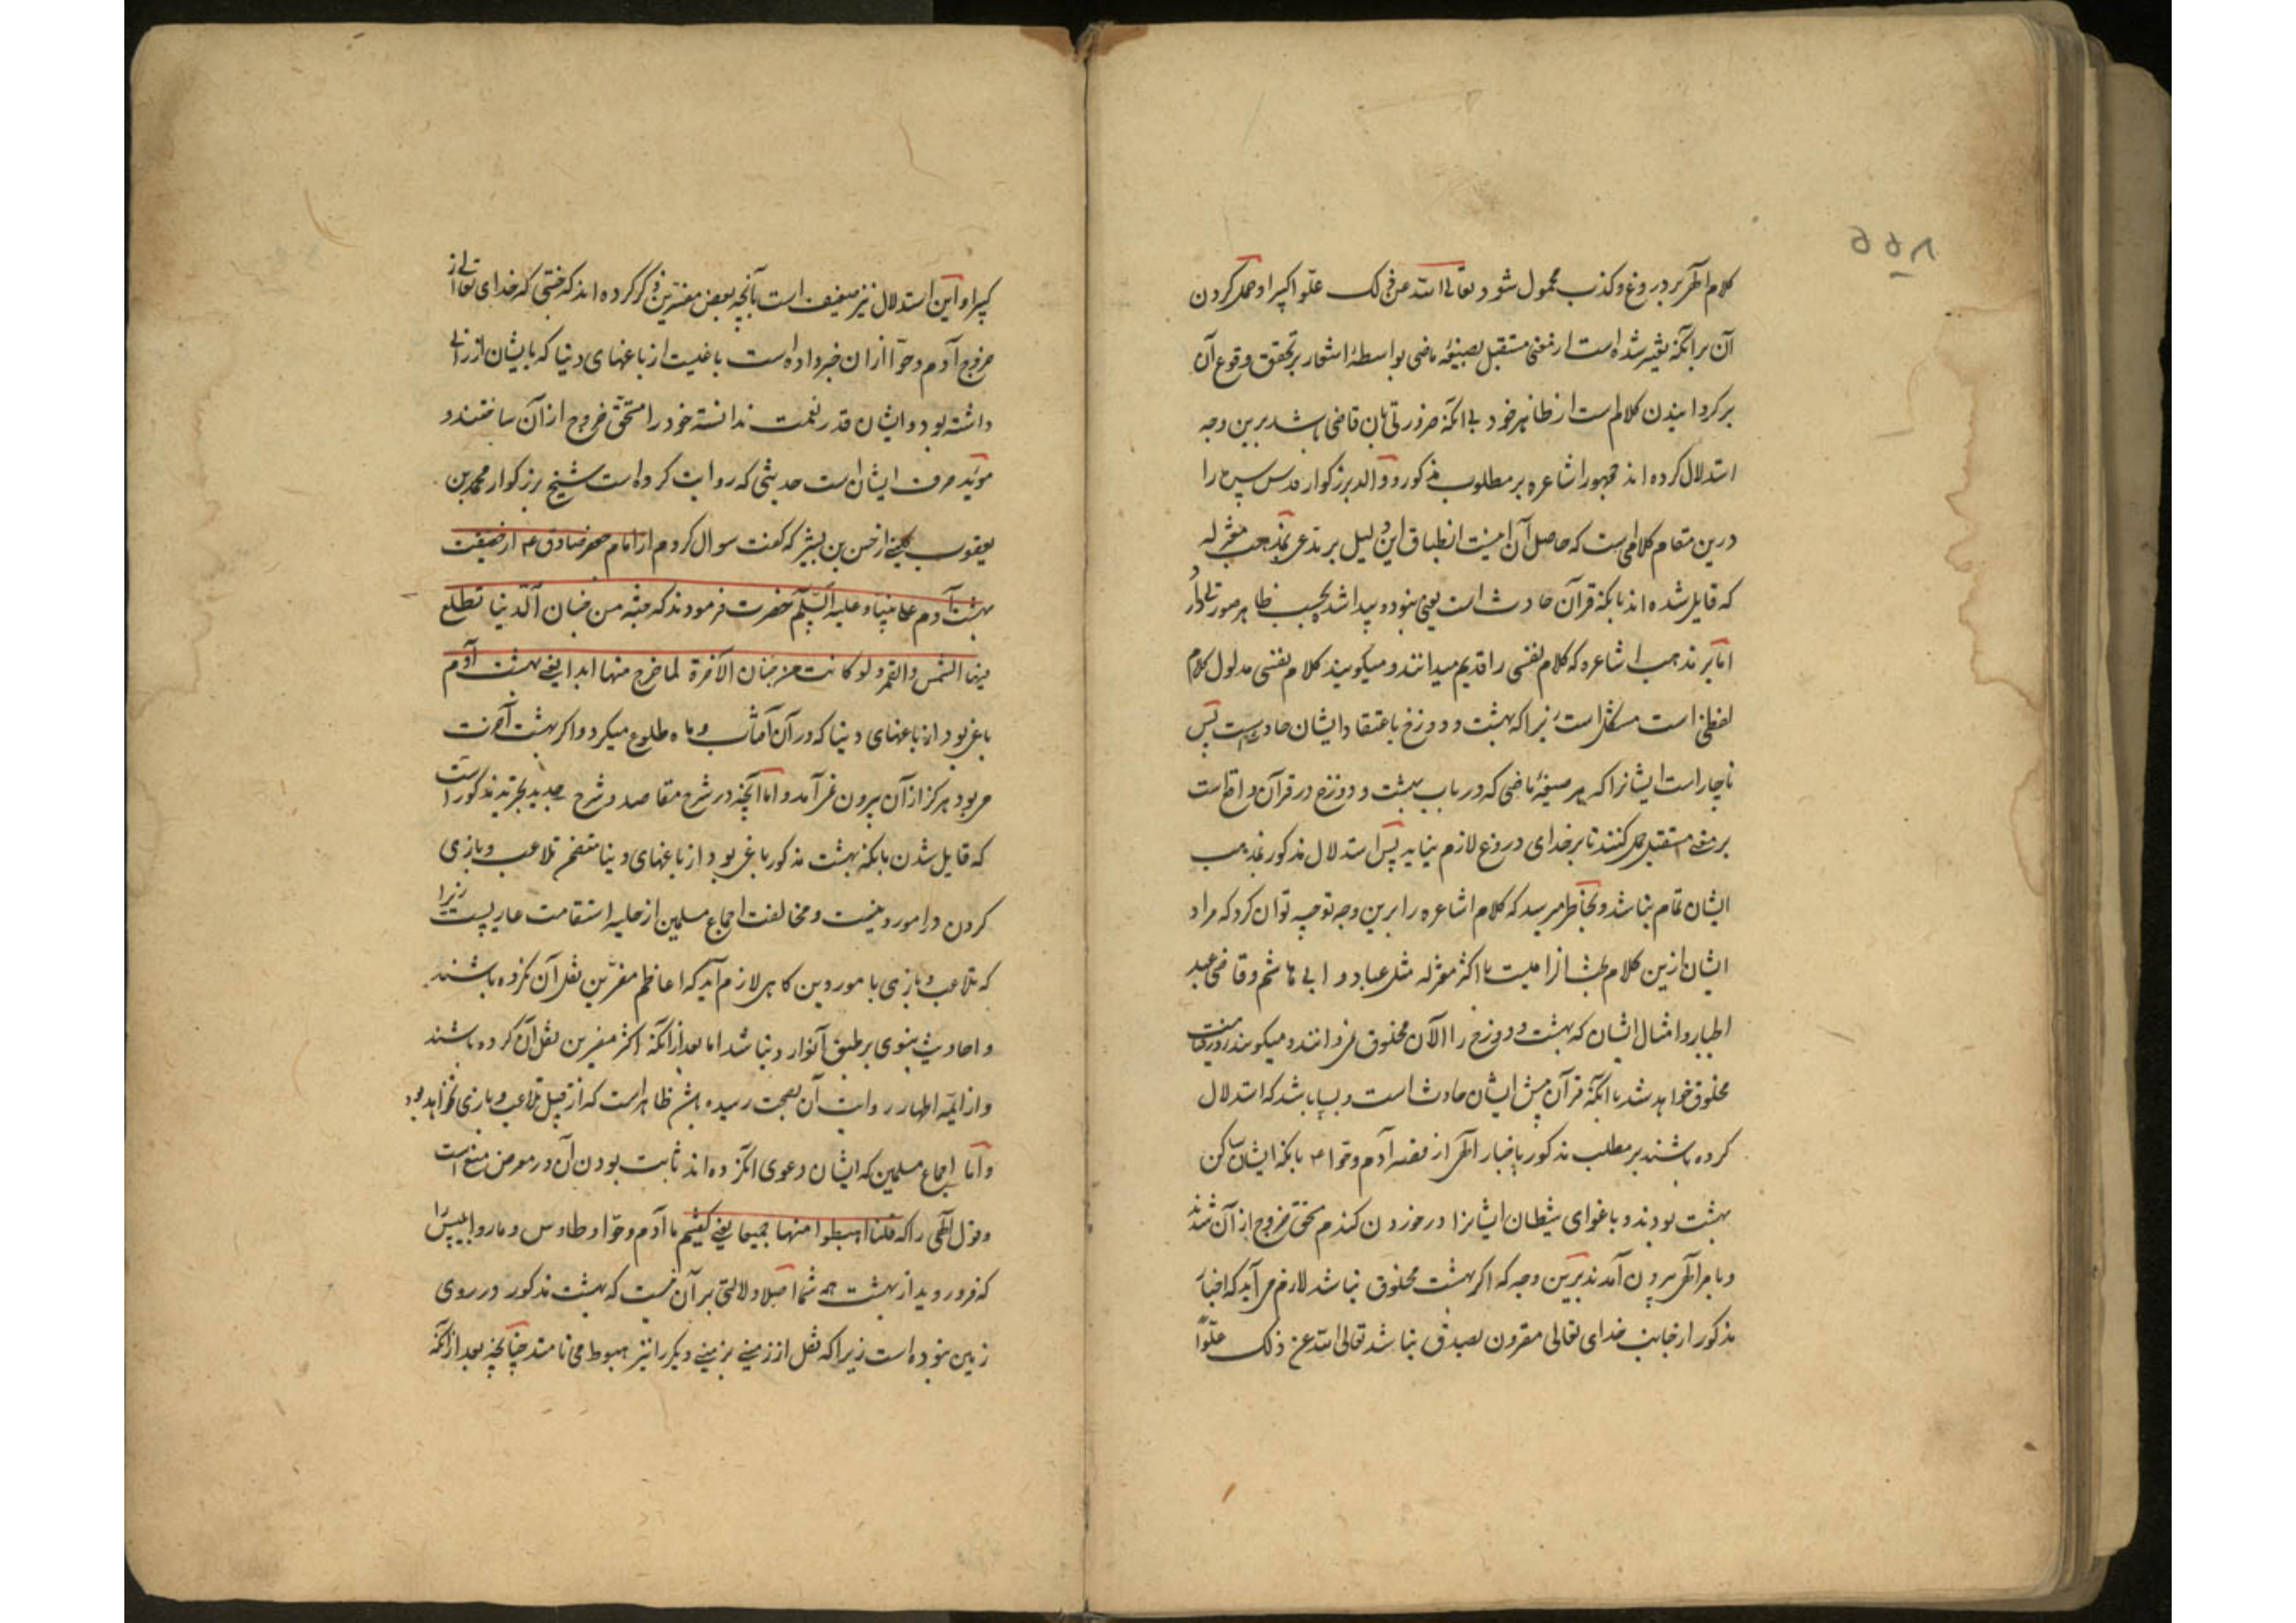 ۵۵۸
کلام الهی بر دروغ و کذب محمول شود تعالی الله عن ذلک علّوا کبیرا و حمل کردن
آن بر آنکه تعبیر شده است از معنی مستقبل بصیغهٔ ماضی بواسطهٔ اشعار بر تحقق وقوع آن
برگردانیدن کلام است از ظاهر خود بی آنکه ضرورتی بآن قاضی باشد برین وجه
استدلال کرده اند جمهور اشاعره بر مطلوب مذکور و والد بزرگوار قدس سره را
درین مقام کلامی است که حاصل آن اینست انطباق این دلیل بر مدعی بمذهب معتزله
که قایل شده اند بآنکه قرآن حادث است یعنی نبوده و پیدا شد بحسب ظاهر صورتی دارد
اما بر مذهب اشاعره که کلام نفسی را قدیم میدانند و میگویند کلام نفسی مدلول کلام
لفظی است مشکل است زیرا که بهشت و دوزخ باعتقاد ایشان حادث است پس
ناچار است ایشانرا که هر صیغهٔ ماضی که در باب بهشت و دوزخ در قرآن واقع است
بر معنی مستقبل حمل کنند تا بر خدای دروغ لازم نیاید پس استدلال مذکور بمذهب
ایشان تمام نباشد و بخاطر میرسد که کلام اشاعره را برین وجه توجیه توان کرد که مراد
ایشان ازین کلام بحث الزامیست با اکثر معتزله مثل عباد و ابی هاشم و قاضی عبد
الجبار و امثال ایشان که بهشت و دوزخ را الآن مخلوق نمی دانند و میگویند روز قیامت
مخلوق خواهد شد با آنکه قرآن پیش ایشان حادث است و بسا باشد که استدلال
کرده باشند بر مطلب مذکور باخبار الهی از قصه آدم و حوا ع بآنکه ایشان ساکن
بهشت بودند و باغوای شیطان ایشانرا در خوردن کندم مستحق خروج از آن شدند
و بامر الهی بیرون آمدند برین وجه که اگر بهشت مخلوق نباشد لازم می آید که اخبار
مذکور از جانب خدای تعالی مقرون بصدق نباشد تعالی الله عن ذلک علّوا
کبیرا و این استدلال نیز ضعیف است بآنچه بعض مفسرین ذکر کرده اند که جنتی که خدای تعالی از
خروج آدم و حوّا از ان خبر داده است باغیست از باغهای دنیا که بایشان ارزانی
داشته بود و ایشان قدر نعمت ندانسته خود را مستحق خروج از آن ساختند و
مؤید حرف ایشان است حدیثی که روایت کرده است شیخ بزرگوار محمد بن
یعقوب کلینی از حسن بن بشیر که گفت سوال کردم از امام جعفر صادق ع از حقیقت
بهشت آدم علی نبینا و علیه السلم حضرت فرمودند که جنّه من جنان الدنیا تطلع
فیها الشمس والقمر و لو کانت من جنان الآخرة لما خرج منها ابدا یعنی بهشت آدم
باغی بود از باغهای دنیا که در آن آفتاب و ماه طلوع میکرد و اگر بهشت آخرت
می بود هرگز از آن بیرون نمی آمد و اما آنچه در شرح مقاصد و شرح جدید تجرید مذکور است
که قایل شدن بآنکه بهشت مذکور باغی بود از باغهای دنیا متضمن تلاعب و بازی
کردن در امور دینست و مخالفت اجماع مسلمین از حلیه استقامت عاریست زیرا
که تلاعب و بازی با مور دین کاهی لازم آید که اعاظم مفسرین نقل آن نکرده باشند
و احادیث نبوی بر طبق آن وارد نباشد اما بعد از آنکه اکثر مفسرین نقل آن کرده باشند
و از ایمه اطهار روایت آن بصحت رسیده باشد ظاهر است که از قبیل تلاعب و بازی نخواهد بود
و اما اجماع مسلمین که ایشان دعوی آن کرده اند ثابت بودن آن در معرض منع است
و قول الهی را که قلنا اهبطوا منها جمیعا یعنی گفتیم ما آدم و حوّا و طاوس و مار و ابلیس را
که فرو روید از بهشت همه شما اصلا دلالتی بر آن نیست که بهشت مذکور در روی
زمین نبوده است زیرا که نقل از زمینی بزمینی دیگر را نیز هبوط می نامند چنانچه بعد از آنکه